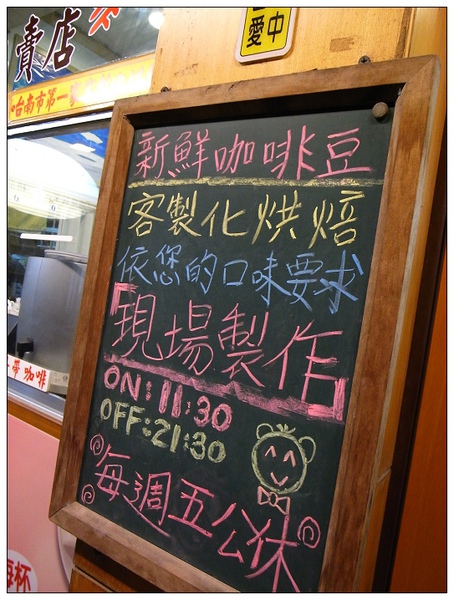 賣店
愛中
台南市第一
新鮮咖啡豆
客製化烘焙
依您的口味要求
「現場製作」
ON:11:30
OFF:21:30
每週五公休
帶咖啡
每杯